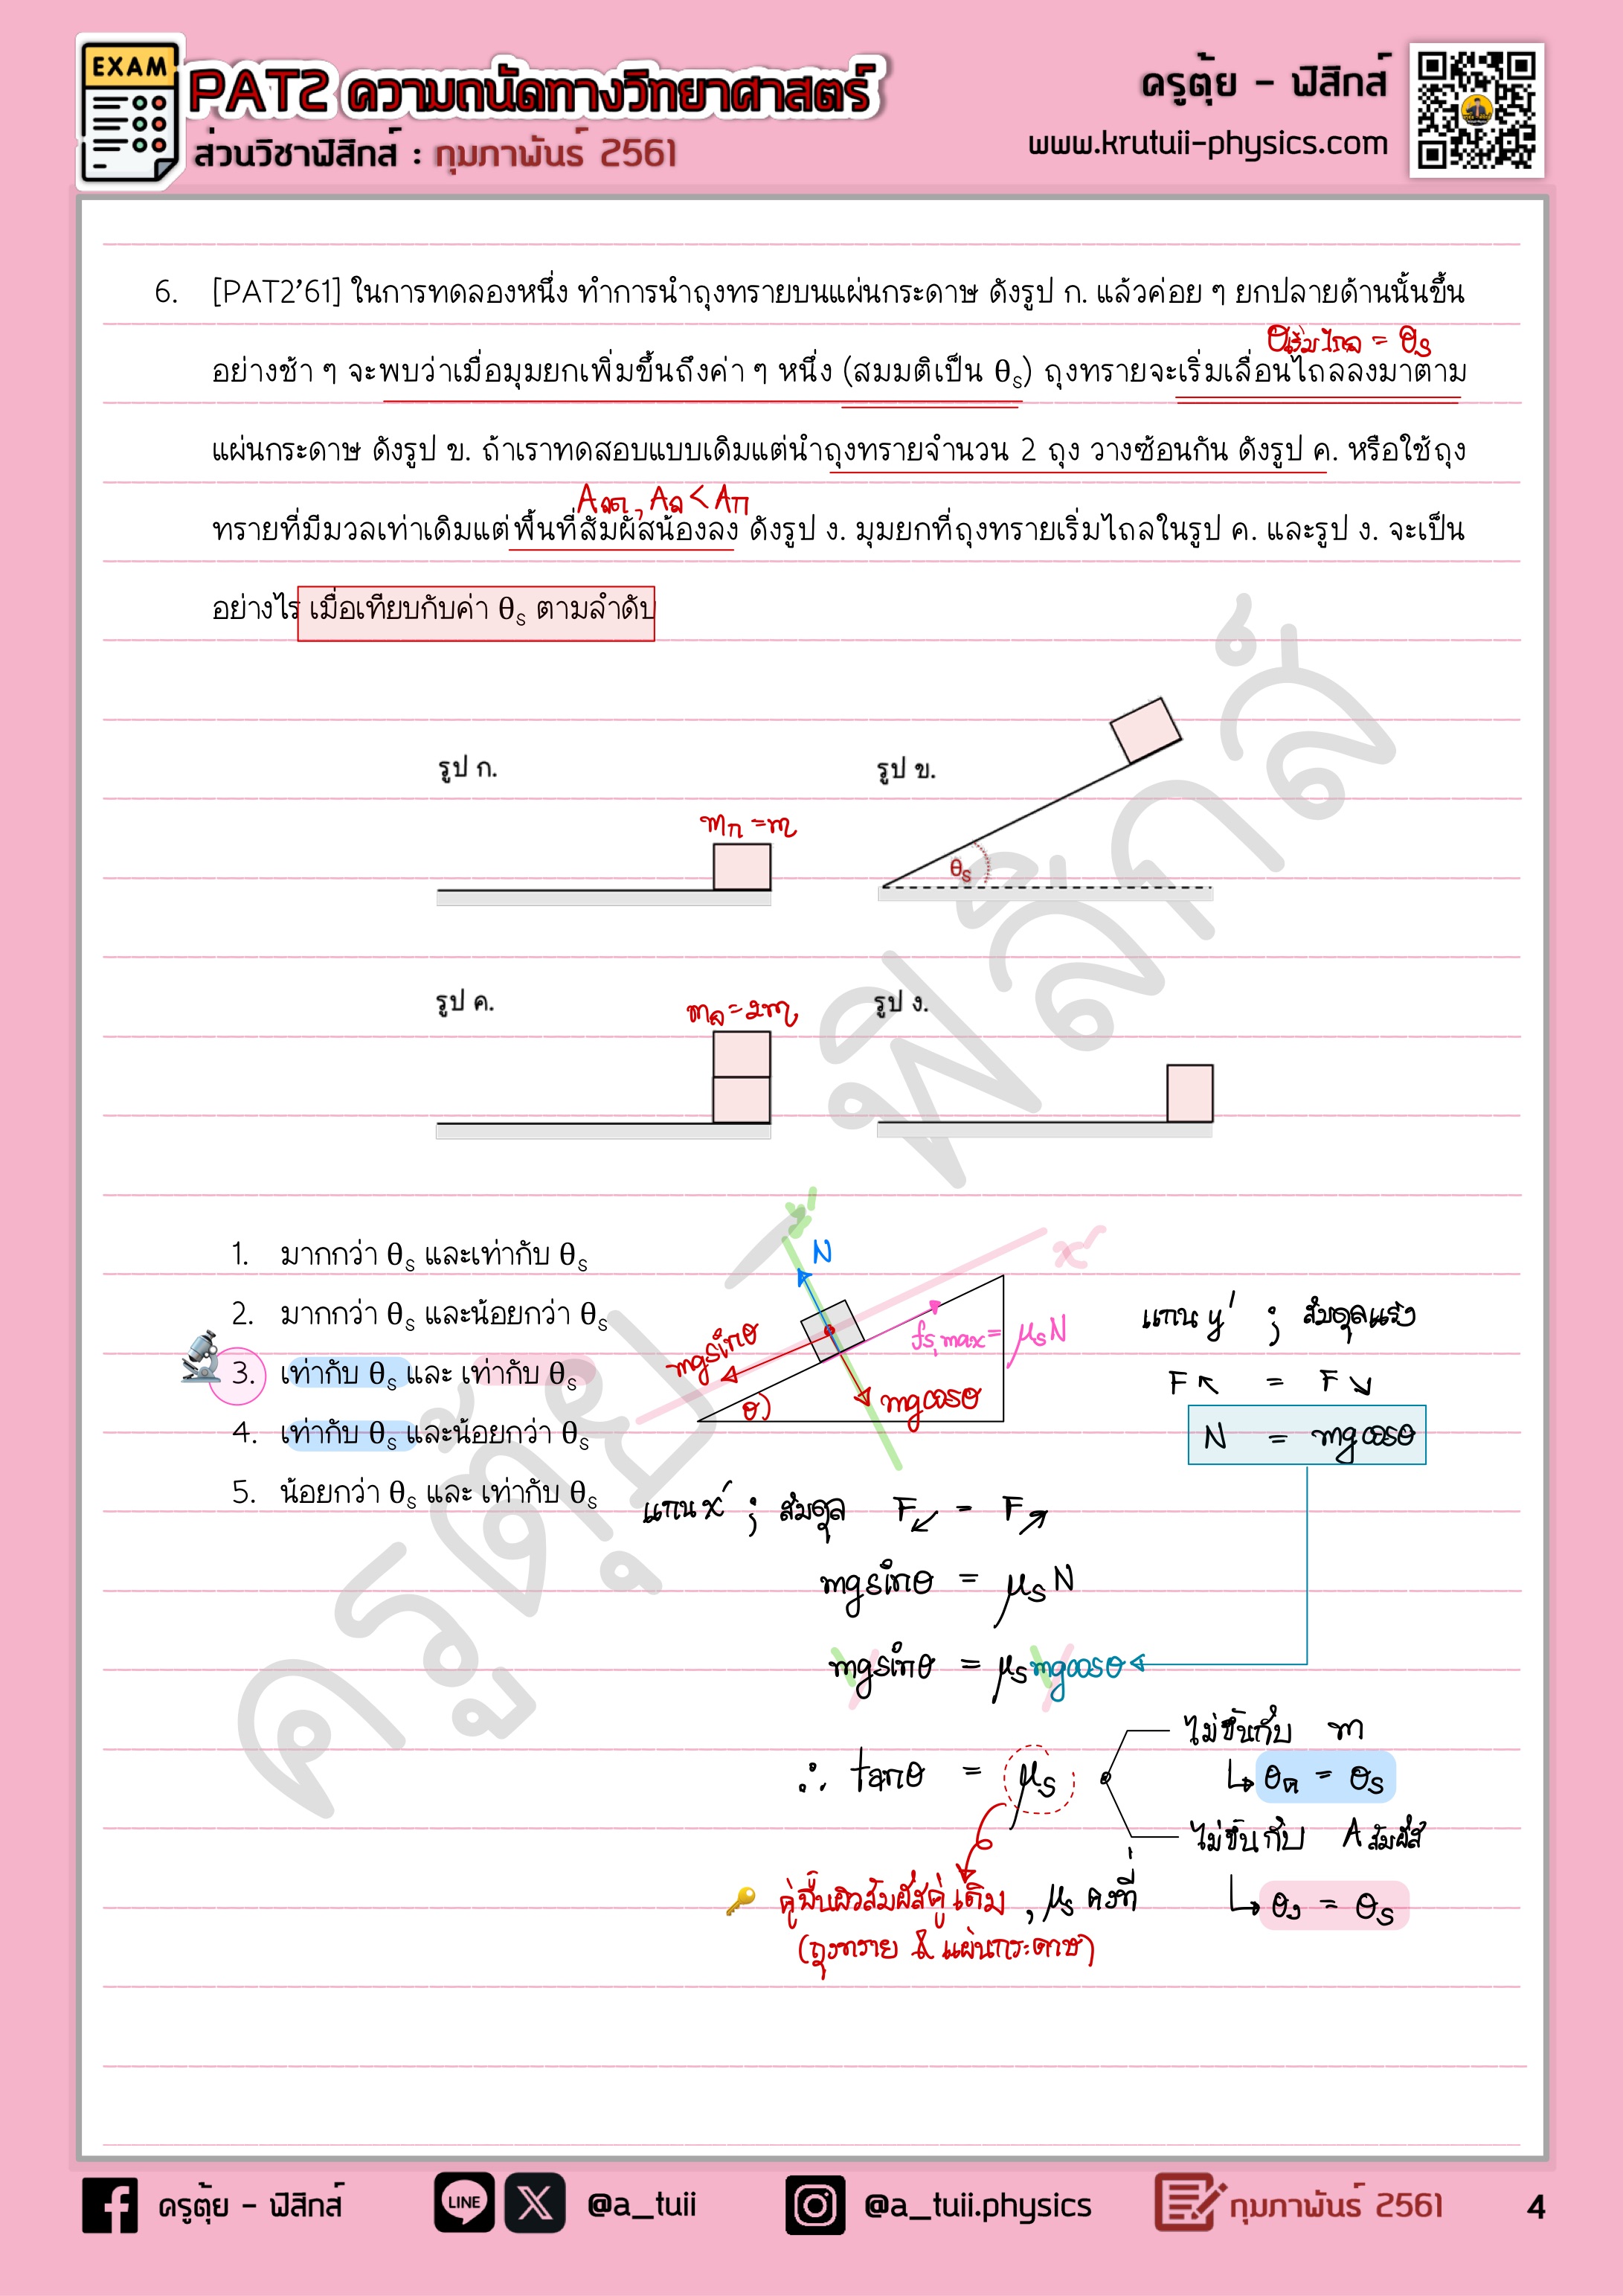 EXAM
PAT2 ความถนัดทางวิทยาศาสตร์
ส่วนวิชาฟิสิกส์ : กุมภาพันธ์ 2561
ครูตุ้ย - ฟิสิกส์
www.krutuii-physics.com
6. [PAT2'61] ในการทดลองหนึ่ง ทำการนำถุงทรายบนแผ่นกระดาษ ดังรูป ก. แล้วค่อย ๆ ยกปลายด้านนั้นขึ้น
θเริ่มไถล = θs
อย่างช้า ๆ จะพบว่าเมื่อมุมยกเพิ่มขึ้นถึงค่า ๆ หนึ่ง (สมมติเป็น θs) ถุงทรายจะเริ่มเลื่อนไถลลงมาตาม
แผ่นกระดาษ ดังรูป ข. ถ้าเราทดสอบแบบเดิมแต่นำถุงทรายจำนวน 2 ถุง วางซ้อนกัน ดังรูป ค. หรือใช้ถุง
Aลด, Aง < Aก
ทรายที่มีมวลเท่าเดิมแต่พื้นที่สัมผัสน้องลง ดังรูป ง. มุมยกที่ถุงทรายเริ่มไถลในรูป ค. และรูป ง. จะเป็น
อย่างไร เมื่อเทียบกับค่า θs ตามลำดับ
รูป ก.
mก = m
รูป ข.
θs
รูป ค.
mค = 2m
รูป ง.
1. มากกว่า θs และเท่ากับ θs
2. มากกว่า θs และน้อยกว่า θs
3. เท่ากับ θs และ เท่ากับ θs
4. เท่ากับ θs และน้อยกว่า θs
5. น้อยกว่า θs และ เท่ากับ θs
y'
x'
N
mgsinθ
fs,max = μsN
θ
mgcosθ
แกน y' ; สมดุลแรง
F↖ = F↘
N = mgcosθ
แกน x' ; สมดุล F↙ = F↗
mgsinθ = μsN
mgsinθ = μsmgcosθ
∴ tanθ = μs
ไม่ขึ้นกับ m
↳ θค = θs
ไม่ขึ้นกับ Aสัมผัส
↳ θง = θs
คู่พื้นผิวสัมผัสคู่เดิม , μs คงที่
(ถุงทราย & แผ่นกระดาษ)
ครูตุ้ย - ฟิสิกส์
ครูตุ้ย - ฟิสิกส์
LINE
X
@a_tuii
@a_tuii.physics
กุมภาพันธ์ 2561
4